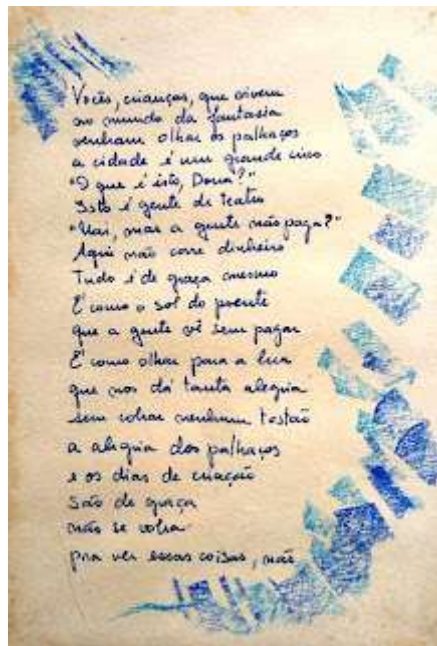 Vocês, crianças, que vivem
no mundo da fantasia
venham olhar os palhaços
a cidade é um grande circo
"O que é isto, Dona?"
Isto é gente de teatro
"Uai, mas a gente não paga?"
Aqui não corre dinheiro
Tudo é de graça mesmo
É como o sol do poente
que a gente vê sem pagar
É como olhar para a lua
que nos dá tanta alegria
sem cobrar nenhum tostão
a alegria dos palhaços
e os dias de criação
São de graça
não se cobra
pra ver essas coisas, não